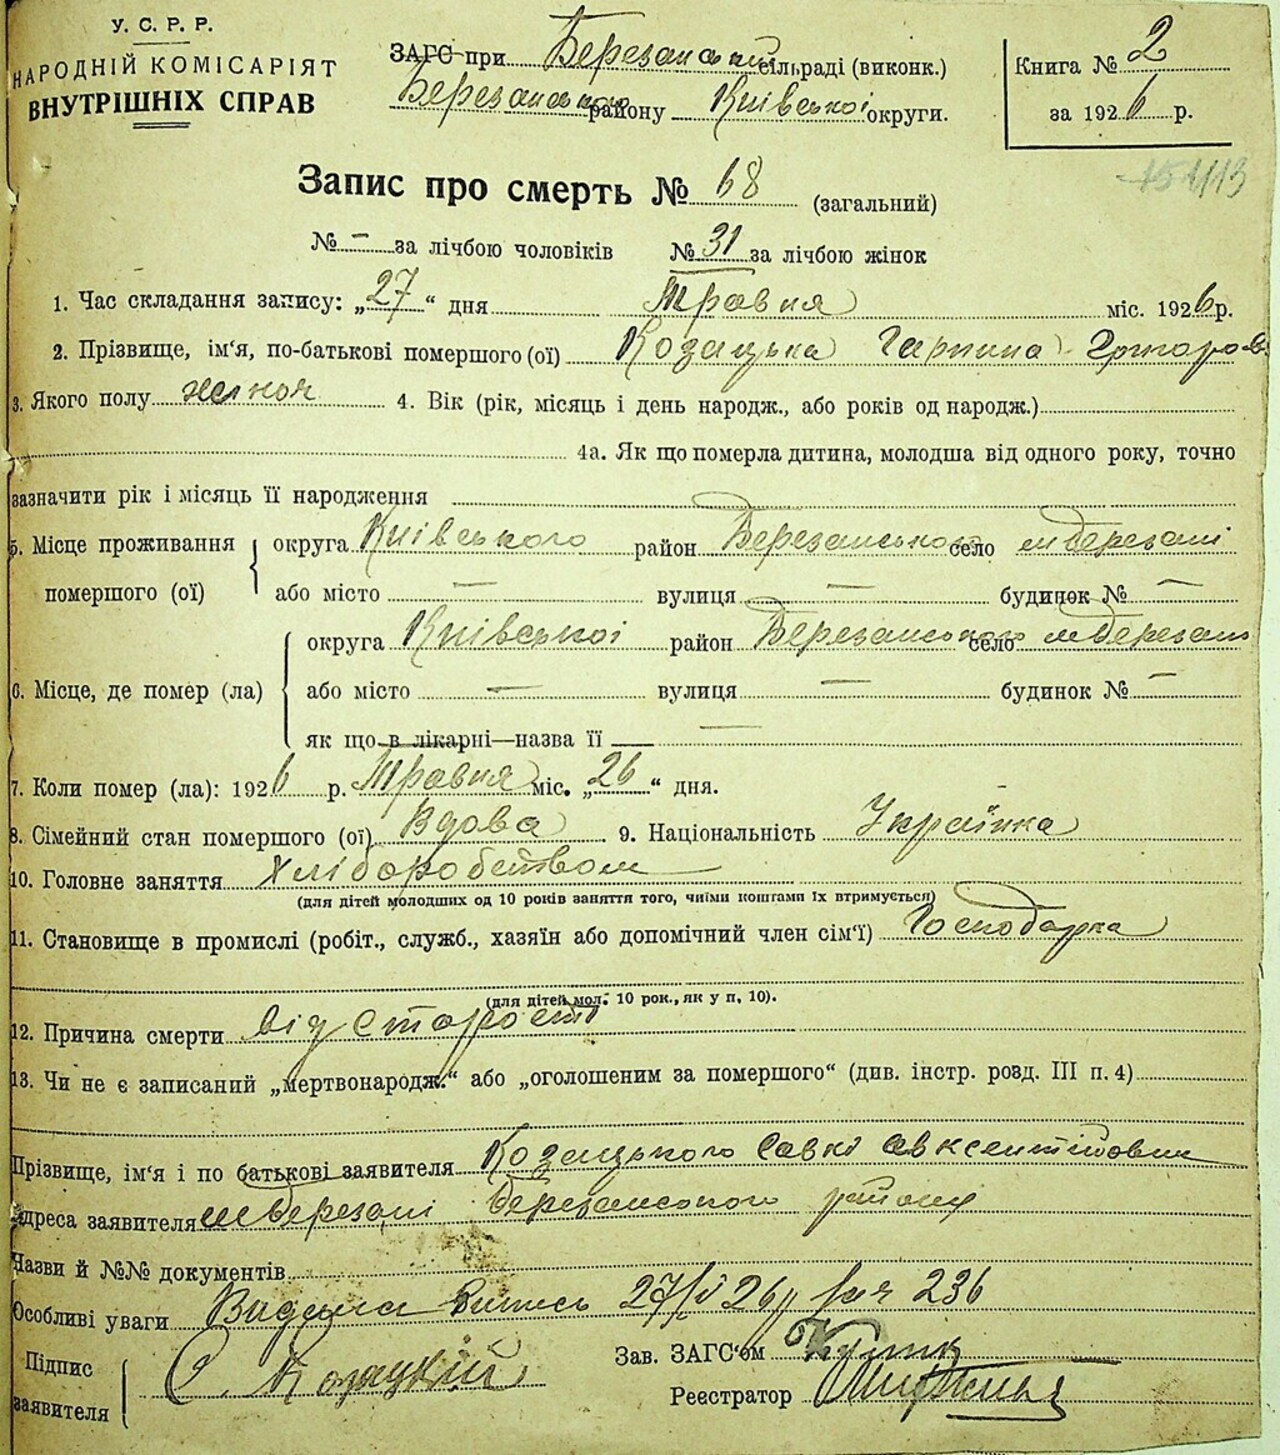 У. С. Р. Р.
НАРОДНІЙ КОМІСАРІЯТ
ВНУТРІШНІХ СПРАВ
ЗАГС при Березанській сільраді (виконк.)
Березанського району Київської округи.
Книга № 2
за 1926 р.
Запис про смерть № 68 (загальний)
№ — за лічбою чоловіків № 31 за лічбою жінок
1. Час складання запису: „27“ дня Травня міс. 1926 р.
2. Прізвище, ім'я, по-батькові помершого (ої) Козацька Гарпина Григоров
3. Якого полу 4. Вік (рік, місяць і день народж., або років од народж.)
4а. Як що померла дитина, молодша від одного року, точно
зазначити рік і місяць її народження
5. Місце проживання помершого (ої)
округа Київського район Березанського село м Березані
або місто — вулиця — будинок № —
6. Місце, де помер (ла)
округа Київської район Березанського село м Березань
або місто — вулиця — будинок № —
як що в лікарні—назва її —
7. Коли помер (ла): 1926 р. Травня міс. „26“ дня.
8. Сімейний стан помершого (ої) Вдова 9. Національність Українка
10. Головне заняття Хліборобством
(для дітей молодших од 10 років заняття того, чиїми коштами їх втримується)
11. Становище в промислі (робіт., служб., хазяїн або допомічний член сім'ї) Господарка
(для дітей мол. 10 рок., як у п. 10).
12. Причина смерти від старости
13. Чи не є записаний „мертвонародж.“ або „оголошеним за помершого“ (див. інстр. розд. III п. 4)
Прізвище, ім'я і по батькові заявителя Козацького Савки Авксентійович
Адреса заявителя м Березані Березанського району
Назви й №№ документів
Особливі уваги Видана Випись 27/V 26 р 236
Підпис заявителя С. Козацкій
Зав. ЗАГС'ом
Реестратор